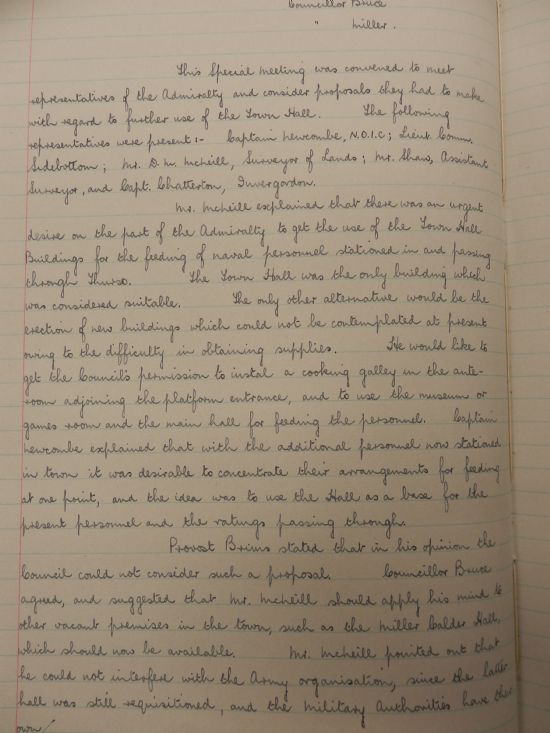 Councillor Bruce
" Miller.
This Special meeting was convened to meet
representatives of the Admiralty and consider proposals they had to make
with regard to further use of the Town Hall. The following
representatives were present :- Captain Newcombe, N.O.I.C; Lieut. Comm.
Sidebottom; Mr. D. M. McNeill, Surveyor of Lands; Mr. Shaw, Assistant
Surveyor, and Capt. Chatterton, Invergordon.
Mr. McNeill explained that there was an urgent
desire on the part of the Admiralty to get the use of the Town Hall
Buildings for the feeding of naval personnel stationed in and passing
through Thurso. The Town Hall was the only building which
was considered suitable. The only other alternative would be the
erection of new buildings which could not be contemplated at present
owing to the difficulty in obtaining supplies. He would like to
get the Council's permission to instal a cooking galley in the ante-
room adjoining the platform entrance, and to use the museum or
games room and the main hall for feeding the personnel. Captain
Newcombe explained that with the additional personnel now stationed
in town it was desirable to concentrate their arrangements for feeding
at one point, and the idea was to use the Hall as a base for the
present personnel and the ratings passing through.
Provost Brims stated that in his opinion the
Council could not consider such a proposal. Councillor Bruce
agreed, and suggested that Mr. McNeill should apply his mind to
other vacant premises in the town, such as the Miller Calder Hall,
which should now be available. Mr. McNeill pointed out that
he could not interfere with the Army organisation, since the latter
hall was still requisitioned, and the Military Authorities have their
own/